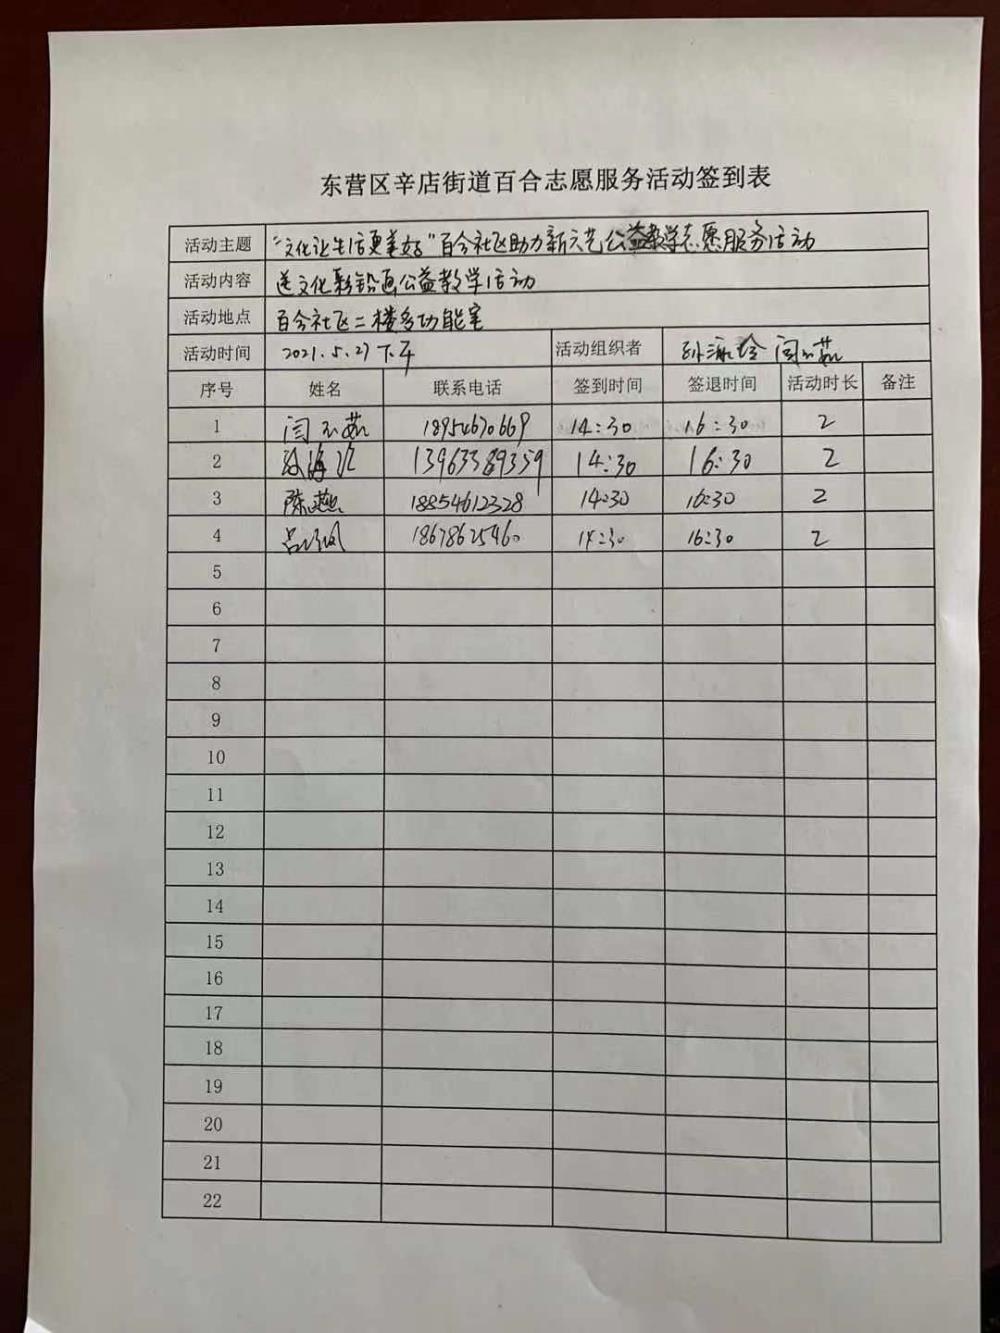 东营区辛店街道百合志愿服务活动签到表
活动主题 “文化让生活更美好”百合社区助力新六艺公益教学志愿服务活动
活动内容 送文化彩铅画公益教学活动
活动地点 百合社区二楼多功能室
活动时间 2021.5.27 下午 活动组织者
序号 姓名 联系电话 签到时间 签退时间 活动时长 备注
1 18954670669 14:30 16:30 2
2 13963389359 14:30 16:30 2
3 陈燕 18854612328 14:30 16:30 2
4 18678625460 14:30 16:30 2
5
6
7
8
9
10
11
12
13
14
15
16
17
18
19
20
21
22